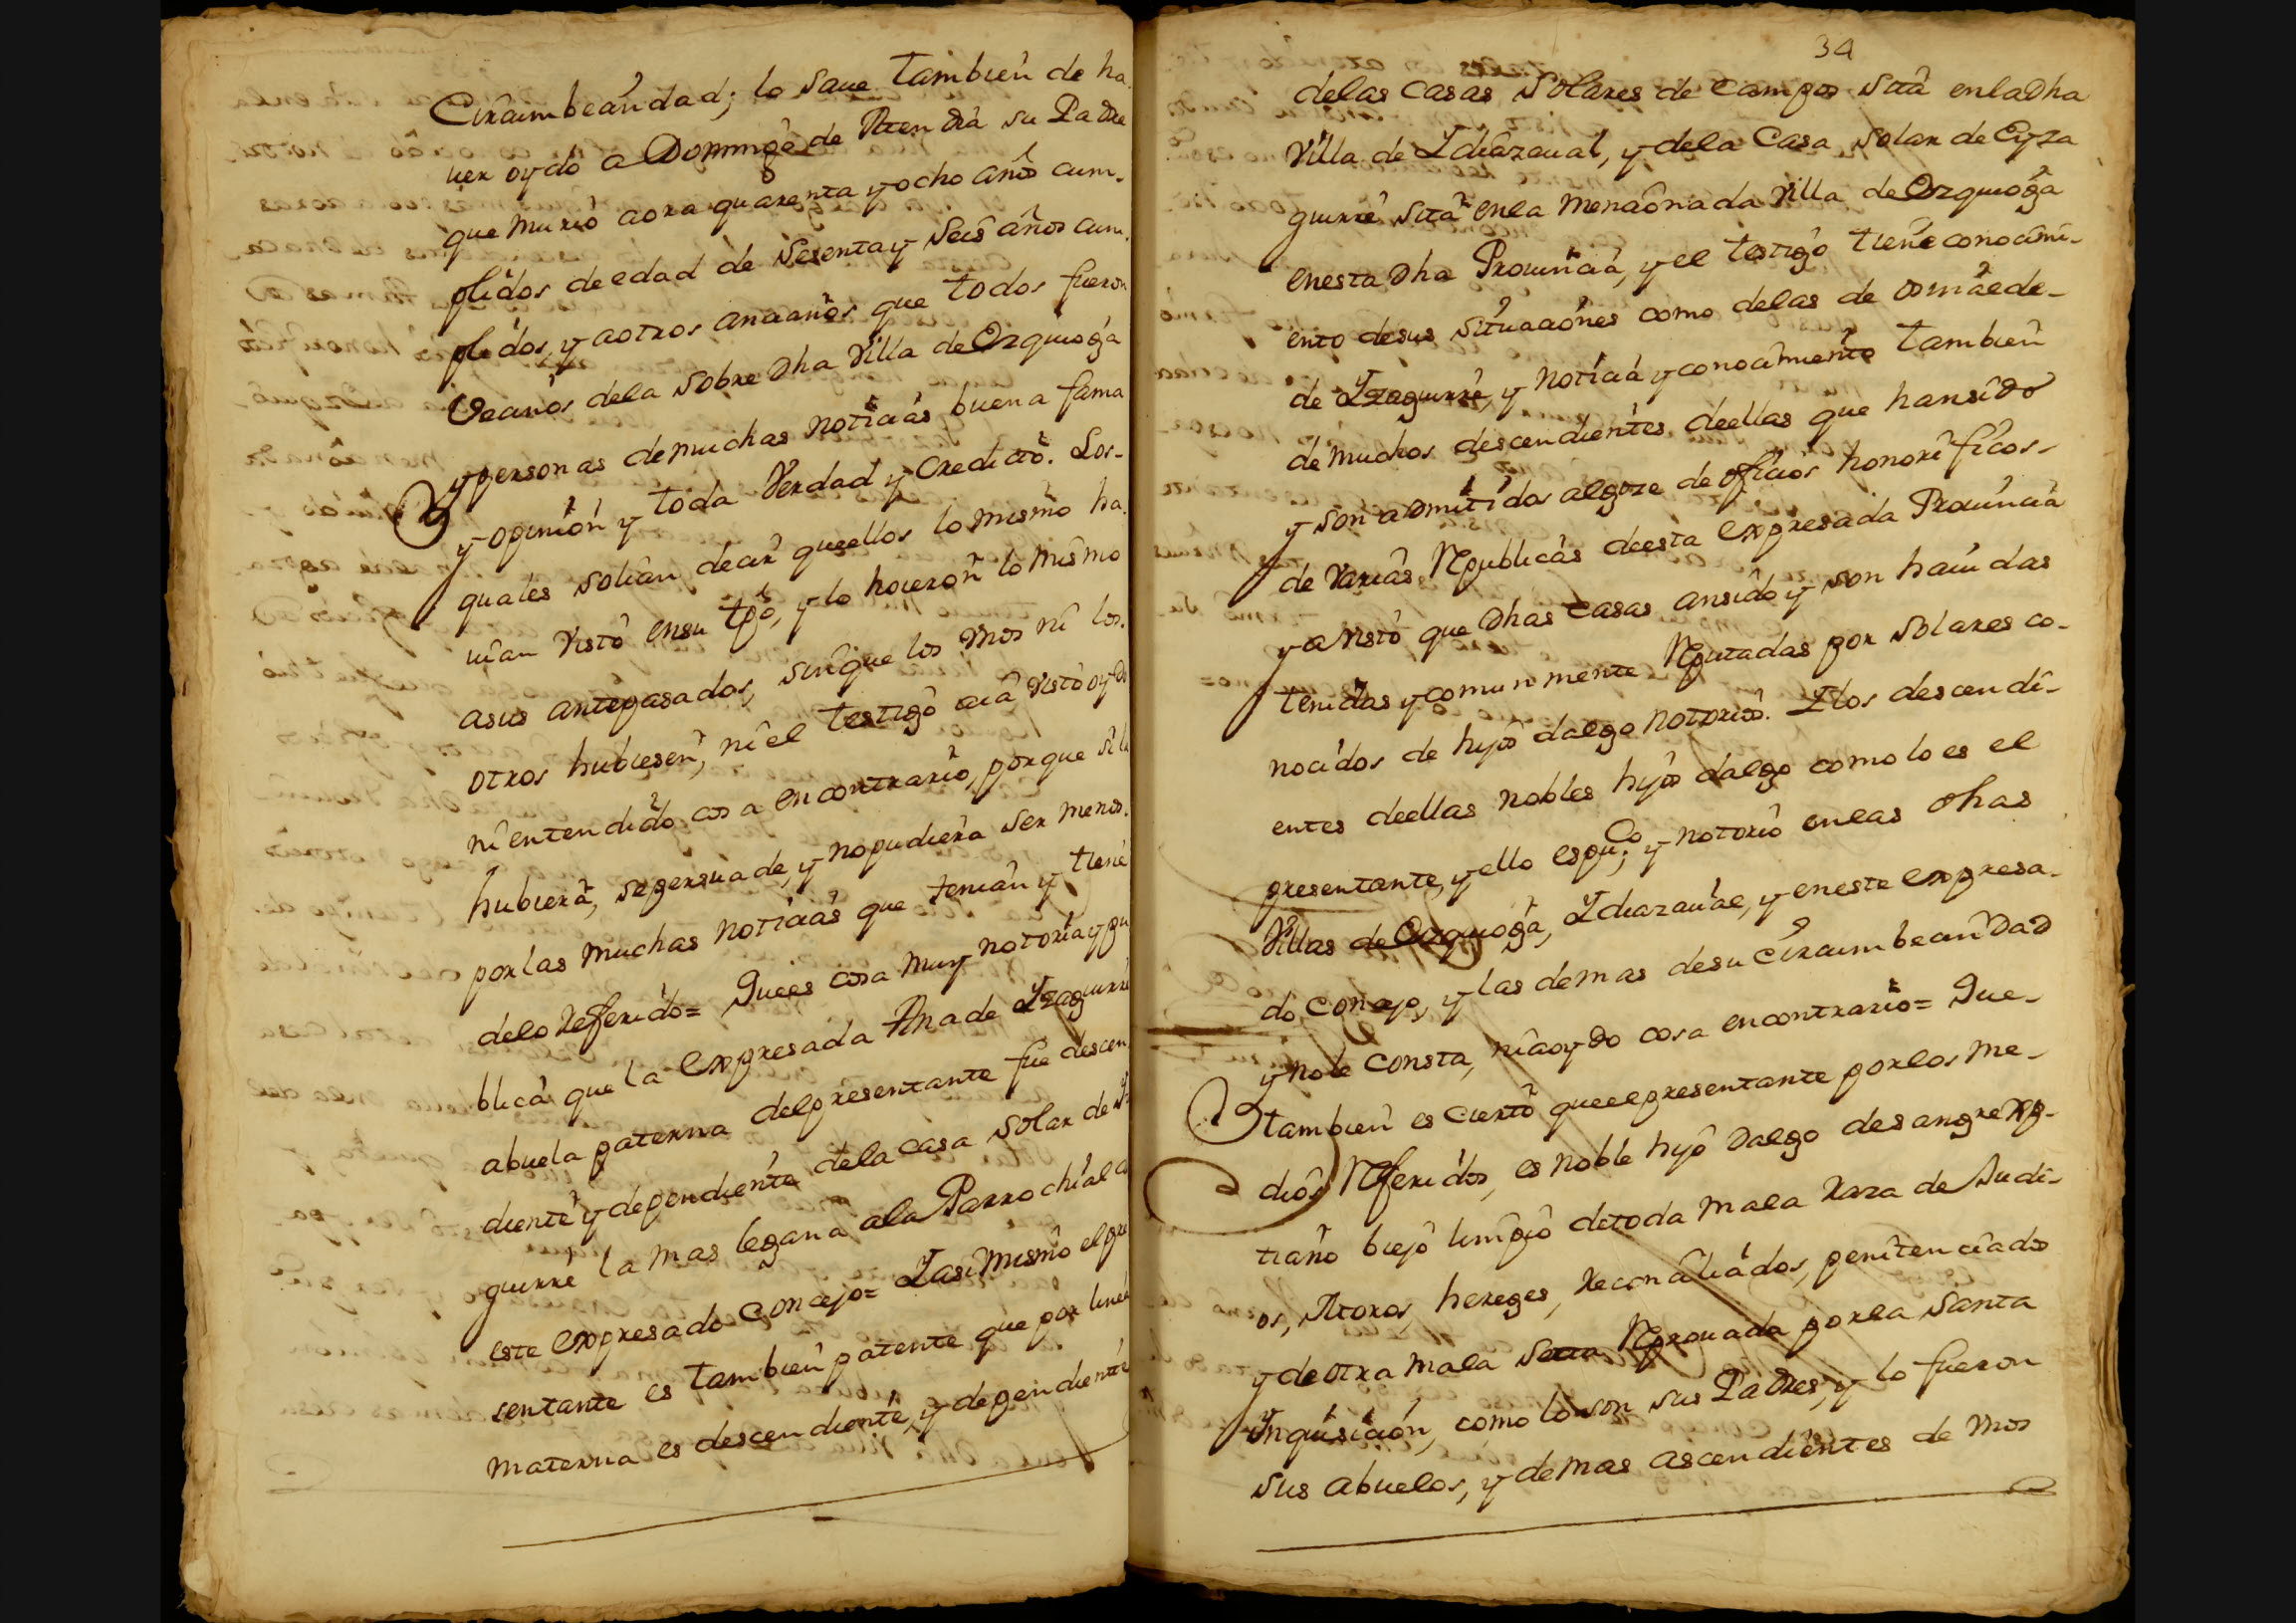 Circumbecindad; lo saue tambien de ha
uer oydo a Domingo de Atendia su Padre
que murió aora quarenta y ocho años cum-
plidos de edad de sesenta y seis años cum-
plidos, y a otros ancianos que todos fueron
Vecinos dela sobre dha Villa de Ozquioga
y personas de muchas noticias buena fama
y opinión y toda Verdad y Credito. Los-
quales solian decir que ellos lo mismo ha-
uian Visto en su tpo, y lo hoieron lo mismo
a sus antepasados, sin que los Vnos ni los-
otros hubiesen, ni el testigo aia Visto oydo
ni entendido cosa en contrario, porque si lo
hubiera, se persuade, y no pudiera ser menos-
por las muchas noticias que tenian y tiene
delo Referido= Que es cosa muy notoria y pu
blica que la expresada Ana de Yzaguirre
abuela paterna del presentante fue descen-
diente y dependiente dela casa solar de Yz
guirre la mas legana ala Parrochial de
este expresado Concejo= Y asi mismo el pre
sentante es tambien patente que por linea
materna es descendiente, y dependiente
34
delas casas Solares de Campos sita en la Dha
Villa de Ydiazaual, y dela Casa solar de Eyza
guirre sita en la mencionada Villa de Ozquioga
en esta Dha Prouincia, y el testigo tiene conocimi-
ento de sus situaciones como delas de
de Yzaguirre, y noticia y conocimiento tambien
de muchos descendientes de ellas que han sido
y son admitidos al goze de oficios honorificos-
de Varias Republicas de esta expresada Prouincia
y a Visto que Dhas casas an sido y son hauidas
tenidas y comunmente Reputadas por solares co-
nocidos de hijos dalgo notorios. Y los descendi-
entes de ellas nobles hijos dalgo como lo es el
presentante, y ello es puco; y notorio en las dhas
Villas de Ozquioga, Ydiazaual, y en este expresa-
do Concejo, y las demas de su circumbecindad
y no le consta, ni a oydo cosa en contrario= Que-
tambien es cierto que el presentante por los me-
dios Referidos, es noble hijo Dalgo de sangre xp-
tiano biejo limpio de toda mala Raza de Judi-
os, Moros, hereges, Reconciliados, penitenciados
y de otra mala secta Reprouada por la Santa
Ynquisicion, como lo son sus Padres, y lo fueron
sus abuelos, y demas ascendientes de Vnos